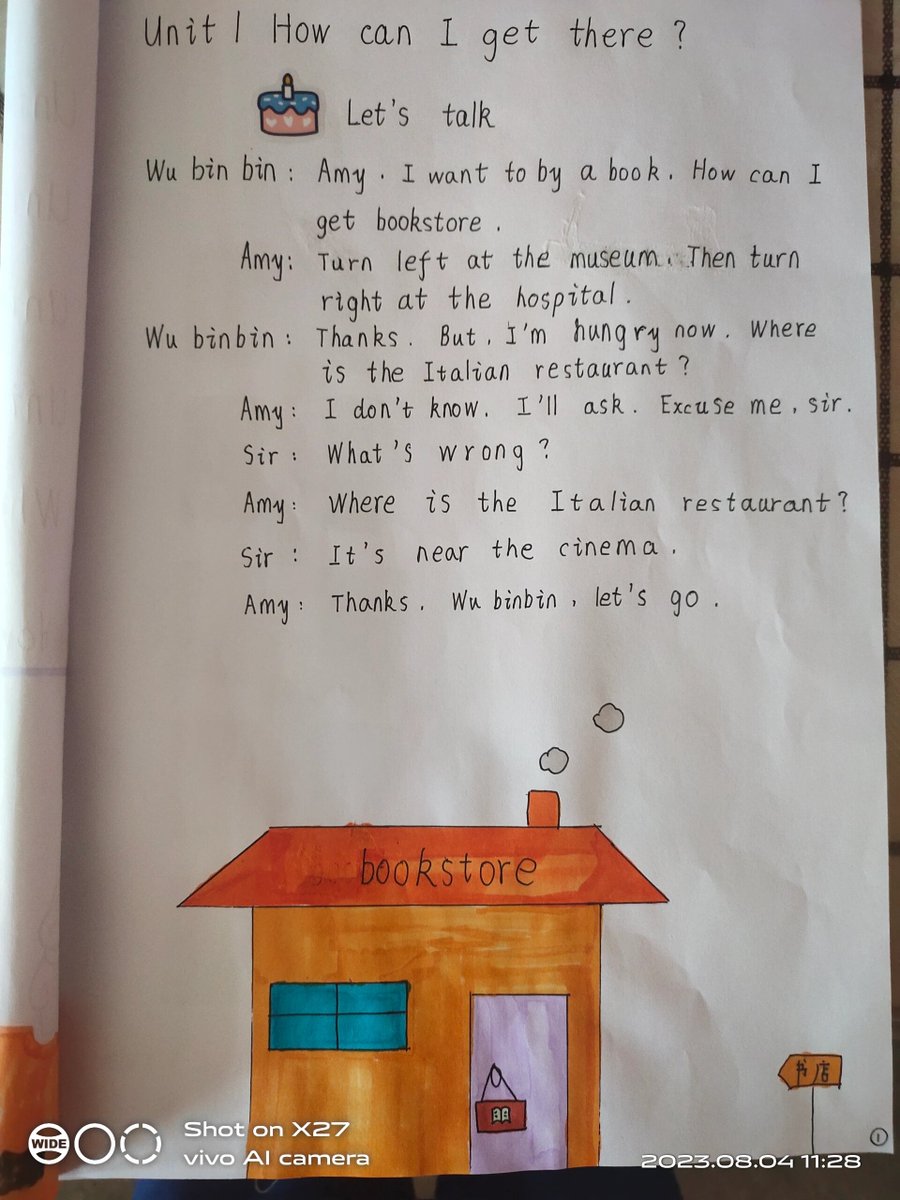 Unit 1 How can I get there?
Let's talk
Wu bin bin: Amy. I want to by a book. How can I
get bookstore.
Amy: Turn left at the museum. Then turn
right at the hospital.
Wu binbin: Thanks. But, I'm hungry now. Where
is the Italian restaurant?
Amy: I don't know. I'll ask. Excuse me, sir.
Sir: What's wrong?
Amy: Where is the Italian restaurant?
Sir: It's near the cinema.
Amy: Thanks. Wu binbin, let's go.
bookstore
书店
①
WIDE
Shot on X27
vivo AI camera
2023.08.04 11:28